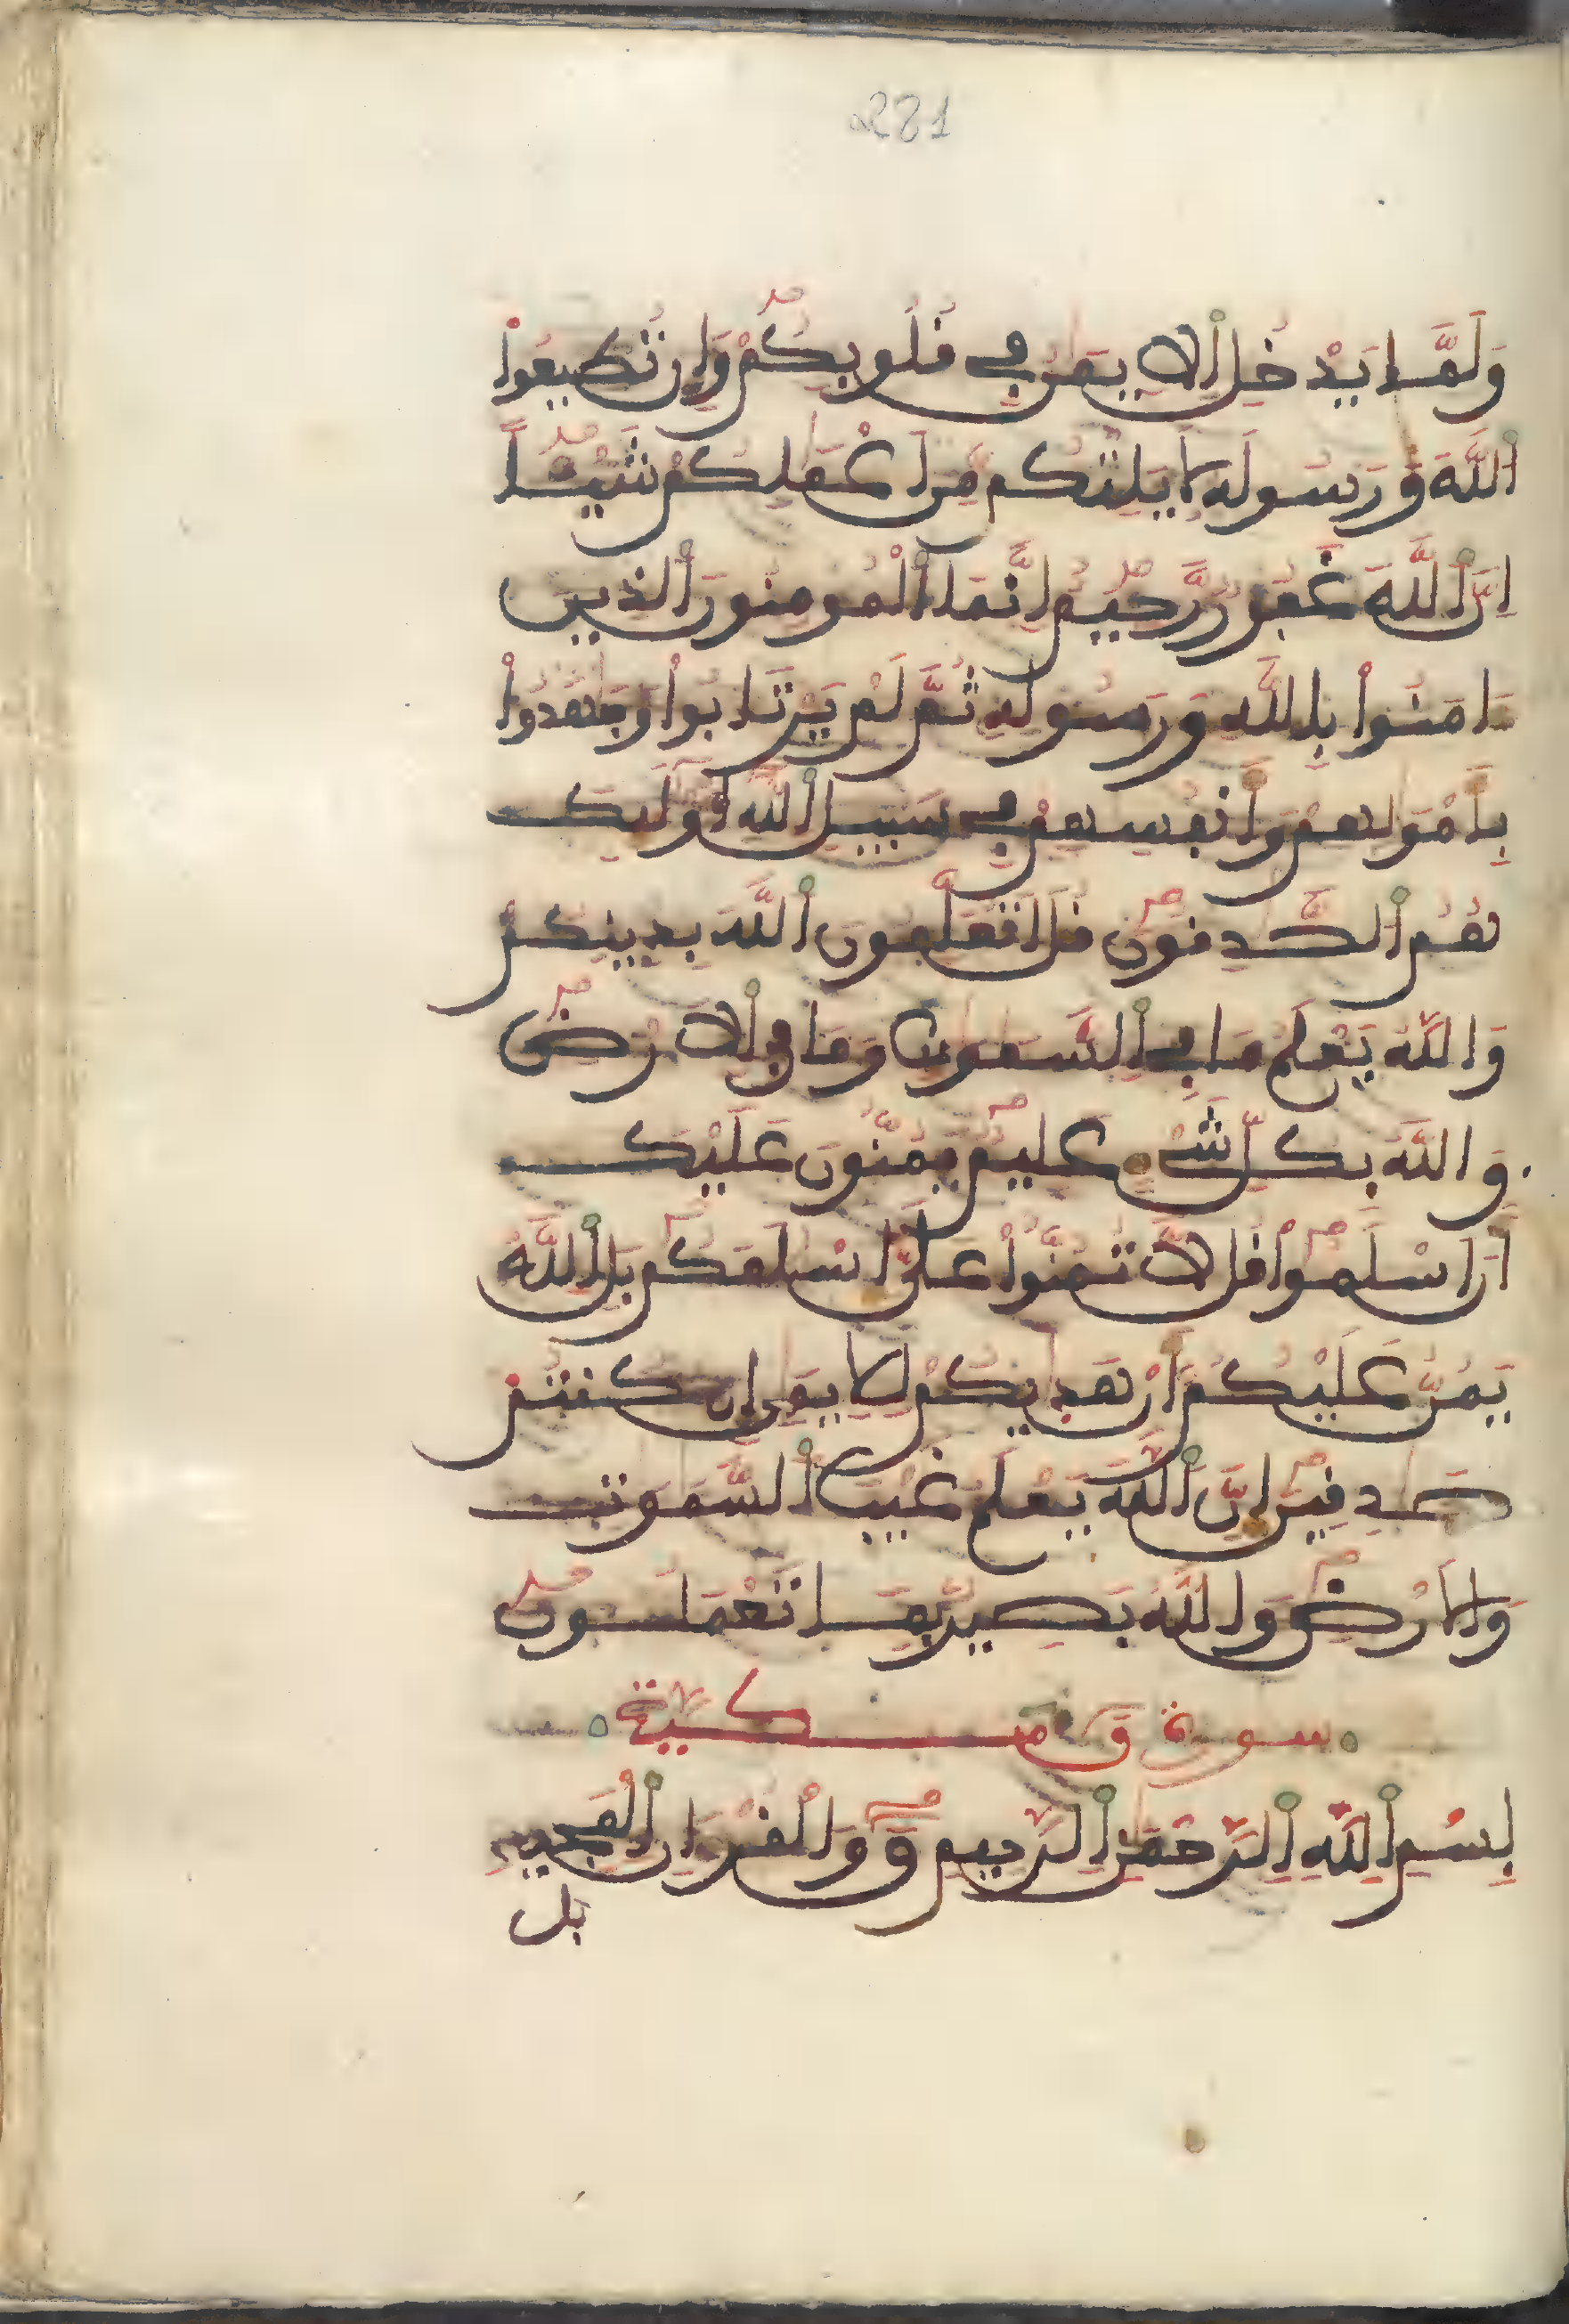 221
وَلَمَّا يَدْخُلِ اَلِايمَٰنُ فِے قُلُوبِكُمْ وَإِن تُطِيعُواْ
اُللَّهَ وَرَسُولَهُ لَا يَلِتْكُم مِّنَ اَعْمَٰلِكُمْ شَيْـًٔا
اِنَّ اَللَّهَ غَفُورٌ رَّحِيمٌ اِنَّمَا اَلْمُومِنُونَ اَلذِينَ
ءَامَنُواْ بِاللَّهِ وَرَسُولِهِ ثُمَّ لَمْ يَرْتَابُواْ وَجَٰهَدُواْ
بِأَمْوَٰلِهِمْ وَأَنفُسِهِمْ فِے سَبِيلِ اِللَّهِ أُوْلَٰٓئِكَ
هُمُ اُلصَّٰدِقُونَ قُلَ اَتُعَلِّمُونَ اَللَّهَ بِدِينِكُمْ
وَاللَّهُ يَعْلَمُ مَا فِے اِلسَّمَٰوَٰتِ وَمَا فِے اِلَارْضِ
وَاللَّهُ بِكُلِّ شَےْءٍ عَلِيمٌ يَمُنُّونَ عَلَيْكَ
أَنَ اَسْلَمُواْ قُل لَّا تَمُنُّواْ عَلَىَّ إِسْلَٰمَكُم بَلِ اِللَّهُ
يَمُنُّ عَلَيْكُمُ أَنْ هَدَيٰكُمْ لِلِايمَٰنِ إِن كُنتُمْ
صَٰدِقِينَ إِنَّ اَللَّهَ يَعْلَمُ غَيْبَ اَلسَّمَٰوَٰتِ
وَالَارْضِ وَاللَّهُ بَصِيرٌ بِمَا تَعْمَلُونَ
سورة ق مكية
بِسْمِ اِللَّهِ اِلرَّحْمَٰنِ اِلرَّحِيمِ قَ وَالْقُرْءَانِ اِلْمَجِيدِ
بل